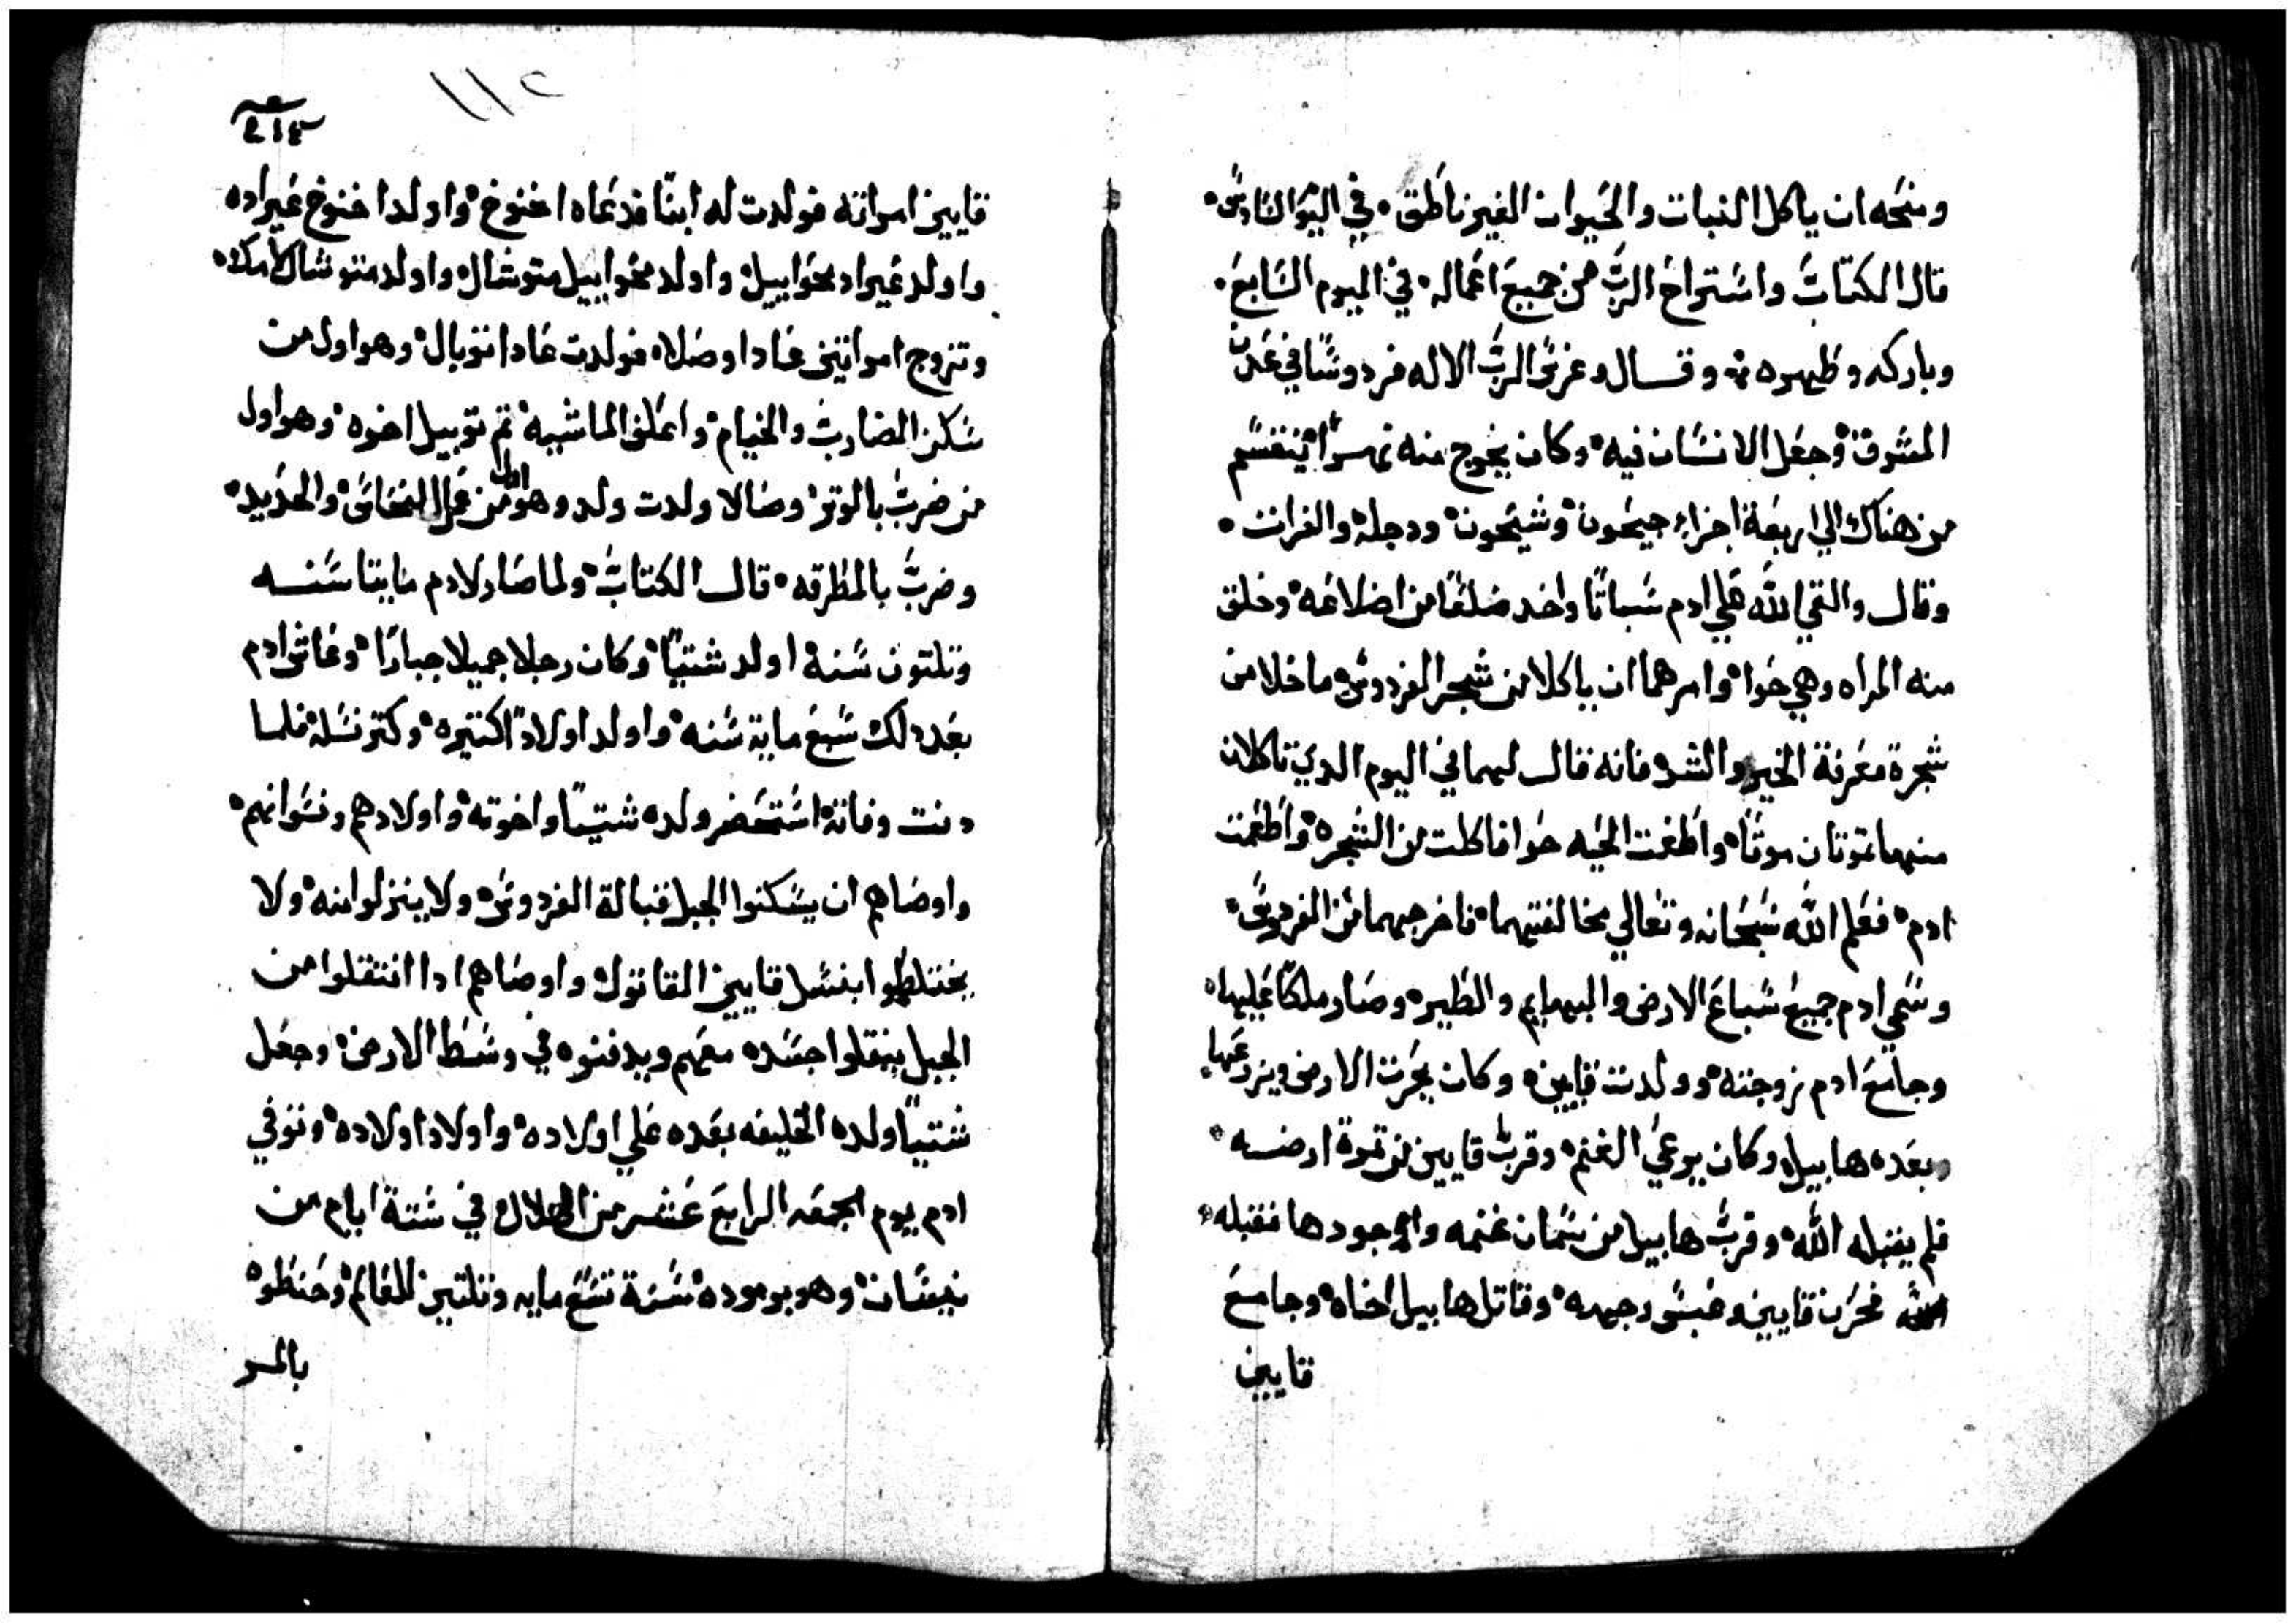 ومنحه ان ياكل النبات والحيوان الغير ناطق • في اليوم السادس •
قال الكتاب واستراح الرب من جميع اعماله • في اليوم السابع •
وباركه وطهره • وقال وغرس الرب الاله فردوسًا في عدن
المشرق • وجعل الانسان فيه • وكان يخرج منه نهرًا ينقسم
من هناك الي اربعة اجزاء جيحون • وشيحون • ودجله • والفرات •
وقال والقي الله علي ادم سباتًا واخد ضلعًا من اضلاعه • وخلق
منه المراه وهي حوا • وامرهما ان ياكلا من شجر الفردوس • ما خلا من
شجرة معرفة الخير والشر • فانه قال لهما في اليوم الدي تاكلان
منهما تموتان موتًا • واطغت الحيه حوا فاكلت من الشجره • واطعمت
ادم • فعلم الله سبحانه وتعالي مخالفتهما • فاخرجهما من الفردوس •
وسمي ادم جميع سباع الارض والبهايم والطير • وصار ملكًا عليها •
وجامع ادم زوجته • وولدت قايين • وكان يحرث الارض ويزرعها
وبعده هابيل • وكان يرعي الغنم • وقرب قايين من تمرة ارضه •
فلم يقبله الله • وقرب هابيل من سمان غنمه واجودها فقبله •
الله فحزن قايين وعبس وجهه • وقاتل هابيل اخاه • وجامع
قايين
١١٢
قايين امراته فولدت له ابنًا فدعاه اخنوخ • واولد اخنوخ غيراد •
واولد غيراد محوابيل • واولد محوابيل متوشال • واولد متوشال لامك •
وتزوج امراتين عادا وصلا • فولدت عادا توبال • وهو اول من
سكن المضارب والخيام • واعلف الماشيه • تم توبيل اخوه • وهو اول
من ضرب بالوتر • وصالا ولدت ولد وهو اول من عمل النحاس • والحديد •
وضرب بالمطرقه • قال الكتاب • ولما صار لادم مايتا سنه
وتلتون سنه • اولد شتيًا • وكان رجلا جميلا جبارًا • وعاش ادم
بعد دلك سبع ماية سنه • واولد اولادًا كتيره • وكتر نسله • فلما
دنت وفاته • استحضر ولده شتيًا واخوته • واولادهم ونسوانهم •
واوصاهم ان يسكنوا الجبل قبالة الفردوس • ولا ينزلوا منه • ولا
يختلطوا بنسل قايين القاتول • واوصاهم ادا انتقلوا من
الجبل ينقلوا جسده معهم ويدفنوه في وسط الارض • وجعل
شتيًا ولده الخليفه بعده علي اولاده • واولاد اولاده • وتوفي
ادم يوم الجمعه الرابع عشر من الهلال في ستة ايام من
نيسان • وهو برموده • سنة تسع مايه وتلتين للعالم • وحنطوه
بالمر